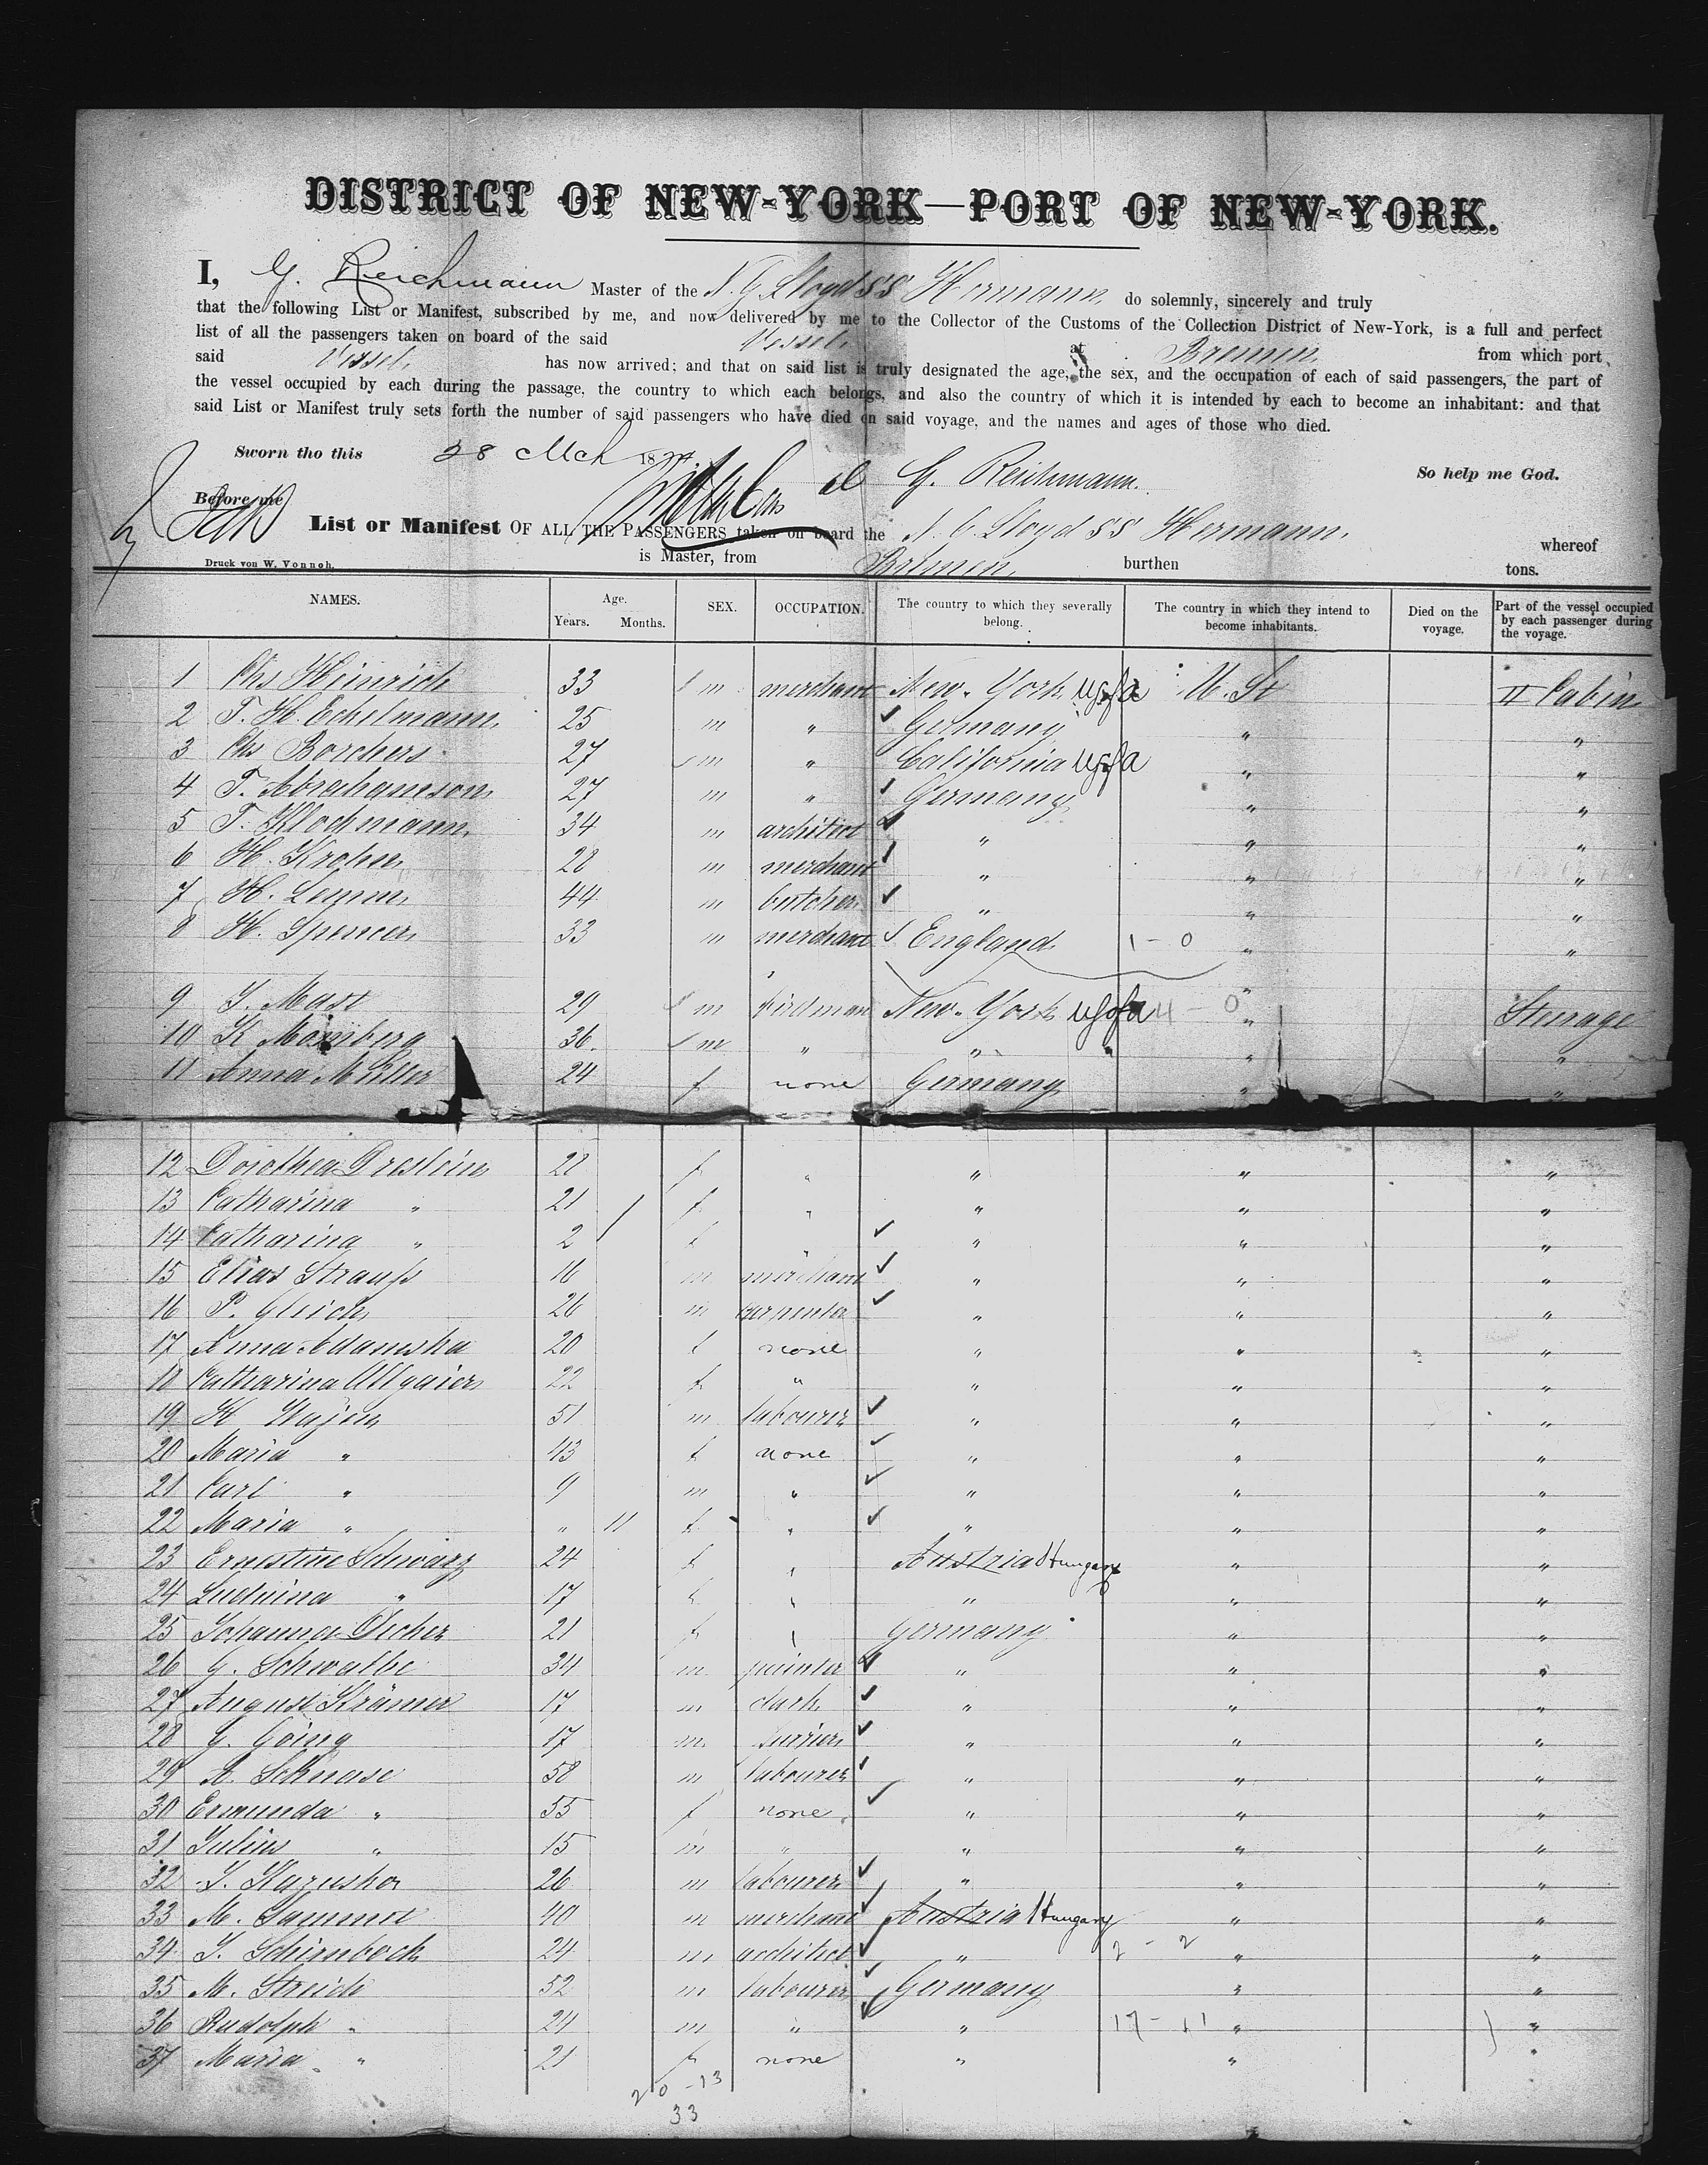 DISTRICT OF NEW-YORK—PORT OF NEW-YORK.
I, G. Reichmann Master of the N. G. Lloyd SS Hermann, do solemnly, sincerely and truly
that the following List or Manifest, subscribed by me, and now delivered by me to the Collector of the Customs of the Collection District of New-York, is a full and perfect
list of all the passengers taken on board of the said Vessel, at Bremen, from which port
said Vessel, has now arrived; and that on said list is truly designated the age, the sex, and the occupation of each of said passengers, the part of
the vessel occupied by each during the passage, the country to which each belongs, and also the country of which it is intended by each to become an inhabitant: and that
said List or Manifest truly sets forth the number of said passengers who have died on said voyage, and the names and ages of those who died.
Sworn tho this 28 Mch 18 G. Reichmann. So help me God.
Before me
List or Manifest OF ALL THE PASSENGERS taken on board the N. G. Lloyd SS Hermann. whereof
is Master, from Bremen, burthen tons.
Druck von W. Vonnoh.
NAMES. Age. Years. Months. SEX. OCCUPATION. The country to which they severally belong. The country in which they intend to become inhabitants. Died on the voyage. Part of the vessel occupied by each passenger during the voyage.
1 Chs Heinrich 33 m merchant New-York usofa U. St II Cabin
2 T. H. Eckelmann 25 m " Germany " "
3 Chs Borchers 27 m " California usofa " "
4 T. Abrahamson 27 m " Germany " "
5 T. Klockmann 34 m architect " " "
6 H. Krohn 28 m merchant " " "
7 H. 44 m butcher " " "
8 H. Spencer 33 m merchant England 1 - 0 " "
9 J. Mast 29 m New-York usofa 4 - 0 " Steerage
10 K 36 m " " " "
11 Anna Müller 24 f none Germany " "
12 Dorothea 28 f " " " "
13 Catharina " 21 f " " " "
14 Catharina " 2 f " " " "
15 Elias Strauß 16 m merchant " " "
16 P. Gleich 26 m carpenter " " "
17 Anna Adamska 20 f none " " "
18 Catharina Allgaier 22 f " " " "
19 H 51 m labourer " " "
20 Maria " 43 f none " " "
21 Carl " 9 m " " " "
22 Maria " " 11 f " " " "
23 Ernestine Schwarz 24 f " Austria Hungary " "
24 " 17 f " " " "
25 Johanna 21 f " Germany " "
26 G. Schwalbe 34 m painter " " "
27 August Krämer 17 m clerk " " "
28 G. Göing 17 m " " "
29 A. Schnase 58 m labourer " " "
30 Ermunda " 55 f none " " "
31 Julius " 15 m " " " "
32 J. 26 m labourer " " "
33 M. 40 m merchant Austria Hungary " "
34 J. Schimbock 24 m architect " 2 - 2 " "
35 M. Streich 52 m labourer Germany " "
36 Rudolph " 24 m " " 17 - 11 " "
37 Maria " 21 f none " " "
20 - 13
33